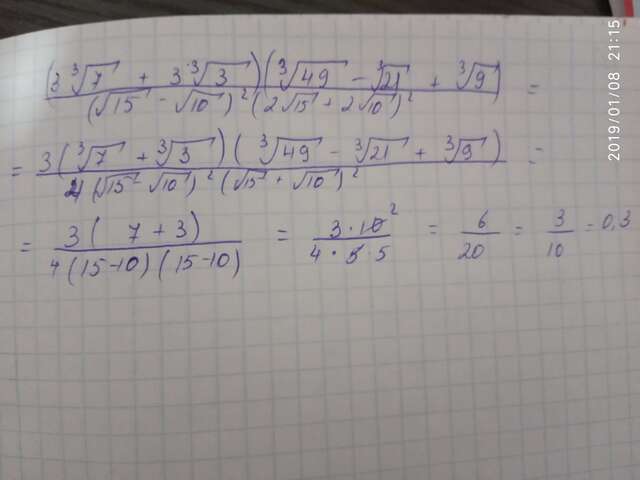 (3∛7 + 3·∛3)(∛49 − ∛21 + ∛9) / (√15 − √10)²(2√15 + 2√10)² =
= 3(∛7 + ∛3)(∛49 − ∛21 + ∛9) / 4(√15 − √10)²(√15 + √10)² =
= 3(7 + 3) / 4(15−10)(15−10) = 3·10² / 4·5·5 = 6/20 = 3/10 = 0,3
2019/01/08 21:15